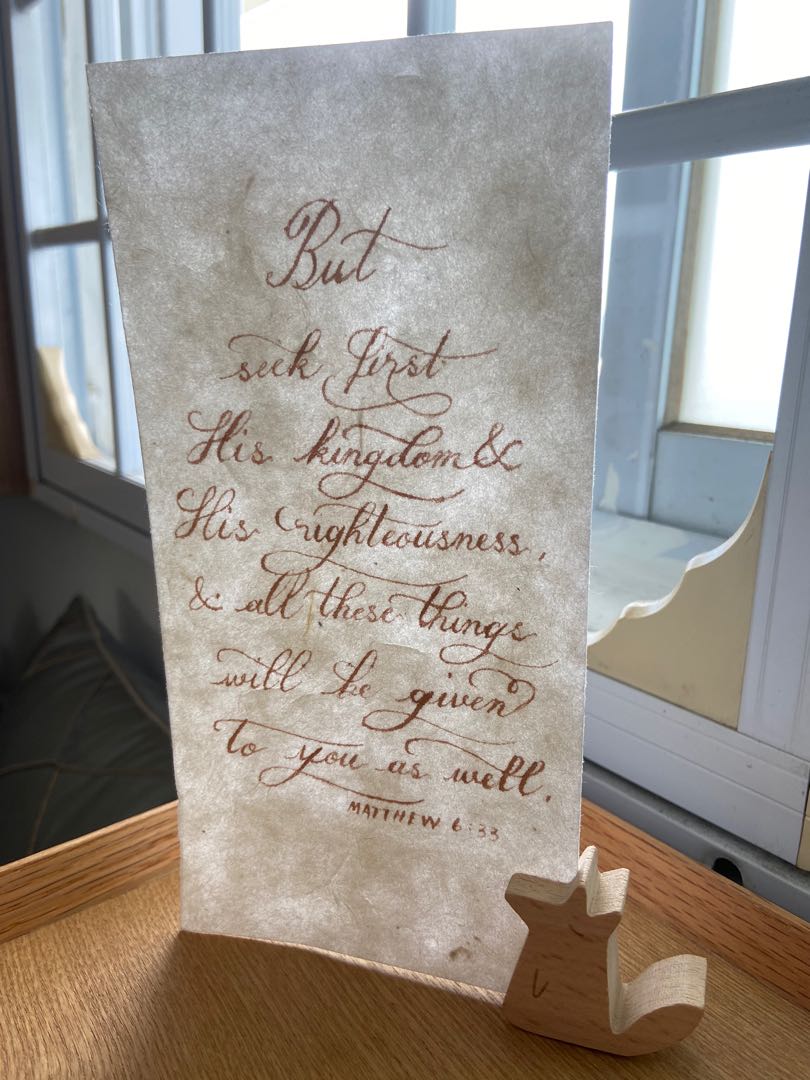 But
seek first
His kingdom &
His righteousness,
& all these things
will be given
to you as well.
MATTHEW 6:33